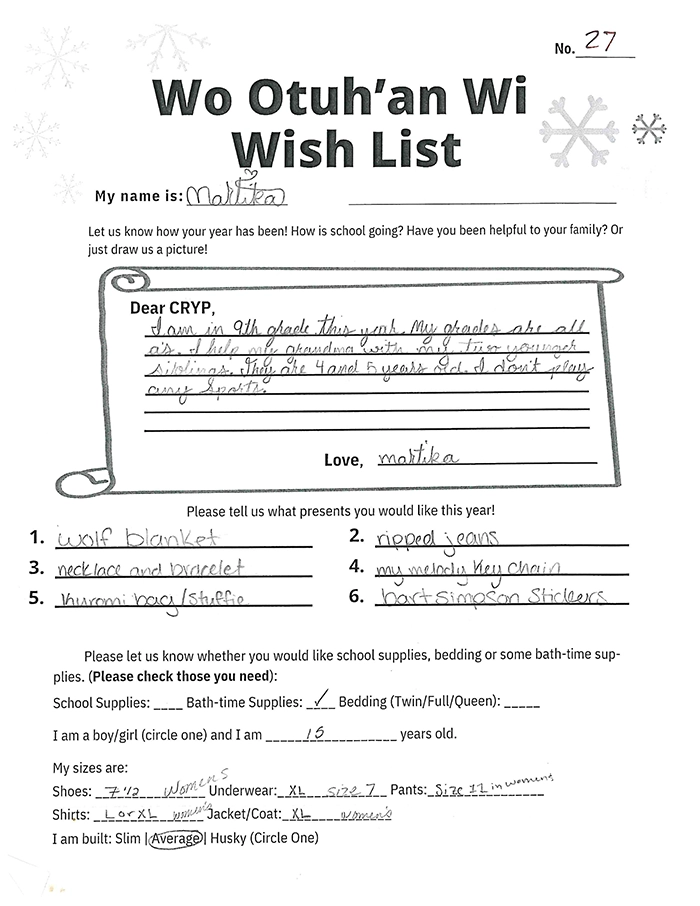 No. 27
Wo Otuh'an Wi
Wish List
My name is: Martika
Let us know how your year has been! How is school going? Have you been helpful to your family? Or
just draw us a picture!
Dear CRYP,
I am in 9th grade this year. My grades are all
a's. I help my grandma with my two younger
siblings. They are 4 and 5 years old. I don't play
any sports.
Love, martika
Please tell us what presents you would like this year!
1. wolf blanket 2. ripped jeans
3. necklace and bracelet 4. my melody key chain
5. kuromi bag/stuffie 6. bart simpson stickers
Please let us know whether you would like school supplies, bedding or some bath-time sup-
plies. (Please check those you need):
School Supplies: ____ Bath-time Supplies: ✓ Bedding (Twin/Full/Queen): _____
I am a boy/girl (circle one) and I am 15 years old.
My sizes are:
Shoes: 7 1/2 womens Underwear: XL size 7 Pants: Size 11 in womens
Shirts: L or XL women's Jacket/Coat: XL women's
I am built: Slim | Average | Husky (Circle One)